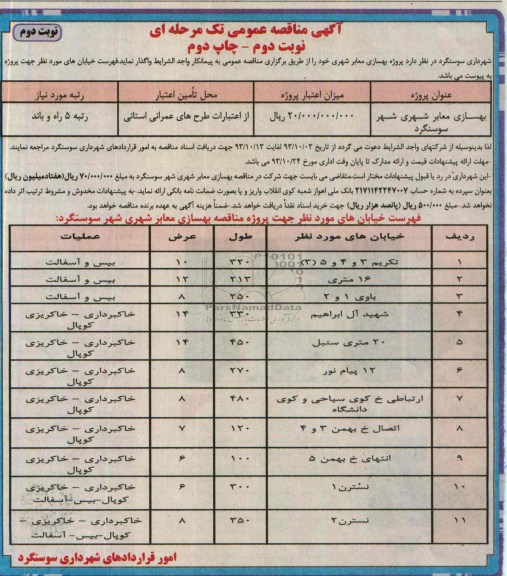 آگهی مناقصه عمومی تک مرحله ای
نوبت دوم
نوبت دوم - چاپ دوم
شهرداری سوسنگرد در نظر دارد پروژه بهسازی معابر شهری خود را از طریق برگزاری مناقصه عمومی به پیمانکار واجد الشرایط واگذار نماید.فهرست خیابان های مورد نظر جهت پروژه
به پیوست می باشد.
عنوان پروژه	میزان اعتبار پروژه	محل تأمین اعتبار	رتبه مورد نیاز
بهسازی معابر شهری شهر سوسنگرد	۲۰/۰۰۰/۰۰۰/۰۰۰ ریال	از اعتبارات طرح های عمرانی استانی	رتبه ۵ راه و باند
لذا بدینوسیله از شرکتهای واجد الشرایط دعوت می گردد از تاریخ ۹۳/۱۰/۰۳ لغایت ۹۳/۱۰/۱۳ جهت دریافت اسناد مناقصه به امور قراردادهای شهرداری سوسنگرد مراجعه نمایند.
-مهلت ارائه پیشنهادات قیمت و ارائه مدارک تا پایان وقت اداری مورخ ۹۳/۱۰/۲۴ می باشد.
-این شهرداری در رد یا قبول پیشنهادات مختار است.متقاضی می بایست جهت شرکت در مناقصه بهسازی معابر شهری شهر سوسنگرد به مبلغ ۷۰/۰۰۰/۰۰۰ ریال(هفتادمیلیون ریال)
بعنوان سپرده به شماره حساب ۲۱۷۱۱۴۲۲۴۷۰۰۷ بانک ملی اهواز شعبه کوی انقلاب واریز و یا بصورت ضمانت نامه بانکی ارائه نماید.-به پیشنهادات مخدوش و مشروط ترتیب اثر داده
نخواهد شد. مبلغ ۵۰۰/۰۰۰ ریال (پانصد هزار ریال) جهت خرید اسناد نقداً دریافت خواهد شد.-ضمناً هزینه آگهی به عهده برنده مناقصه خواهد بود.
فهرست خیابان های مورد نظر جهت پروژه مناقصه بهسازی معابر شهری شهر سوسنگرد:
ردیف	خیابان های مورد نظر	طول	عرض	عملیات
۱	تکریم ۳ و ۴ و ۵ (۳)	۳۲۰	۱۰	بیس و آسفالت
۲	۱۶ متری	۲۱۳	۱۲	بیس و آسفالت
۳	باوی ۱ و ۲	۲۵۰	۸	بیس و آسفالت
۴	شهید آل ابراهیم	۲۳۰	۱۴	خاکبرداری – خاکریزی کوپال
۵	۲۰ متری سنبل	۴۵۰	۱۴	خاکبرداری – خاکریزی کوپال
۶	۱۲ پیام نور	۲۷۰	۸	خاکبرداری – خاکریزی کوپال
۷	ارتباطی خ کوی سیاحی و کوی دانشگاه	۴۸۰	۸	خاکبرداری – خاکریزی کوپال
۸	اتصال خ بهمن ۳ و ۴	۱۲۰	۷	خاکبرداری – خاکریزی کوپال
۹	انتهای خ بهمن ۵	۱۰۰	۶	خاکبرداری – خاکریزی کوپال
۱۰	نسترن۱	۳۰۰	۶	خاکبرداری – خاکریزی کوپال-بیس-آسفالت
۱۱	نسترن۲	۳۵۰	۸	خاکبرداری – خاکریزی – کوپال-بیس- آسفالت
ParsNamadData
امور قراردادهای شهرداری سوسنگرد